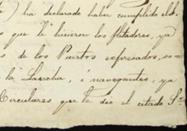 ) ha declarado haber cumplido el d.
que le hicieron los fletadores, ya
de los Puertos refrozados, co
la Laralia, i navegantes, ya
Circulares que le dio el citado S.or